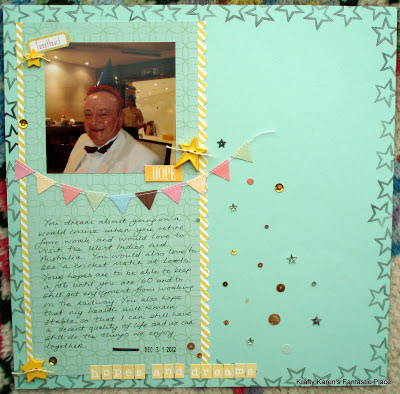 Sweetheart
HOPE
You dream about going on a
world cruise when you retire
from work and would love to
visit the West Indies and
Australia. You would also love to
see a cricket match at Lords.
Your hopes are to be able to keep
a job until you are 60 and to
still get enjoyment from working
on the railway. You also hope
that my health will remain
stable, so that I can still have
a decent quality of life and we can
still do the things we enjoy
together.
DEC 31 2012
hopes and dreams
Krafty Karen's Fantastic Place